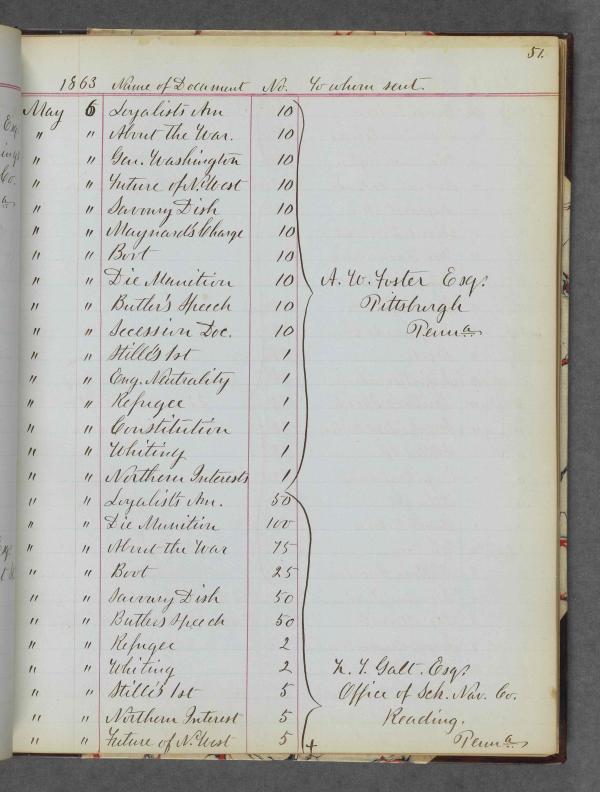 51.
1863 Name of Document No. To whom sent.
May 6 Loyalists Am 10
" " About the War. 10
" " Gen. Washington 10
" " Future of N. West 10
" " Savoury Dish 10
" " Maynard's Charge 10
" " Boot 10
" " Die Manition 10 A. W. Foster Esq.
" " Butler's Speech 10 Pittsburgh
" " Secession Doc. 10 Penna
" " Stillé's 1st 1
" " Eng. Neutrality 1
" " Refugee 1
" " Constitution 1
" " Whiting 1
" " Northern Interests 1
" " Loyalists Am. 50
" " Die Munition 100
" " About the War 75
" " Boot 25
" " Savoury Dish 50
" " Butlers Speech 50
" " Refugee 2
" " Whiting 2 Galt. Esq.
" " Stillé's 1st 5 Office of Sch. Nav. Co.
" " Northern Interest 5 Reading.
" " Future of N. West 5 Penna